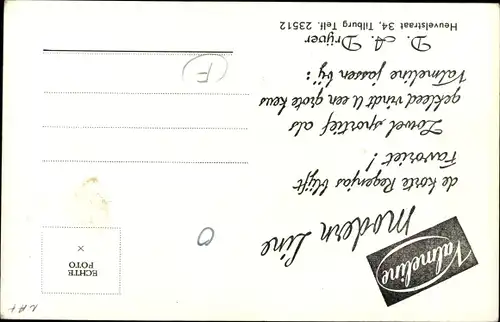 Valmeline
MODERN LINE
de korte Regenjas blijft
Favoriet!
Zowel sportief als
gekleed vindt U een grote keus
Valmeline jassen bij:
D. A. Drijver
Heuvelstraat 34, Tilburg Telf. 23512
ECHTE
FOTO
F
O